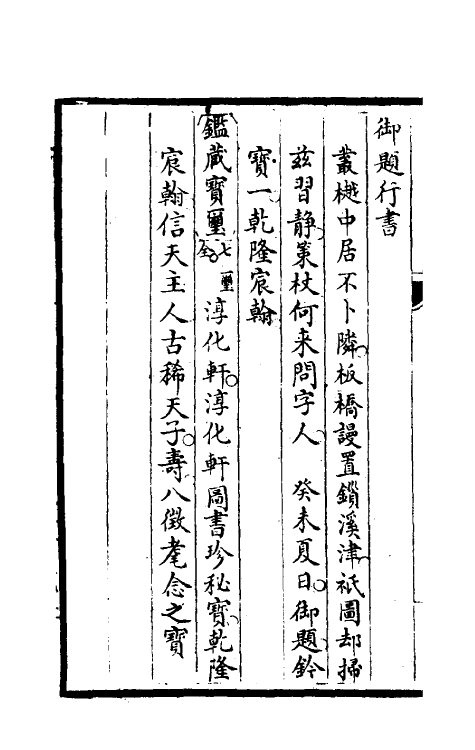 御題行書
叢樾中居不卜隣板橋謾置鎖溪津祇圖却掃
茲習静策杖何来問字人　癸未夏日御題鈐
寶一乾隆宸翰
鑑藏寶璽七璽全淳化軒淳化軒圖書珍秘寶乾隆
宸翰信天主人古稀天子壽八徵耄念之寶